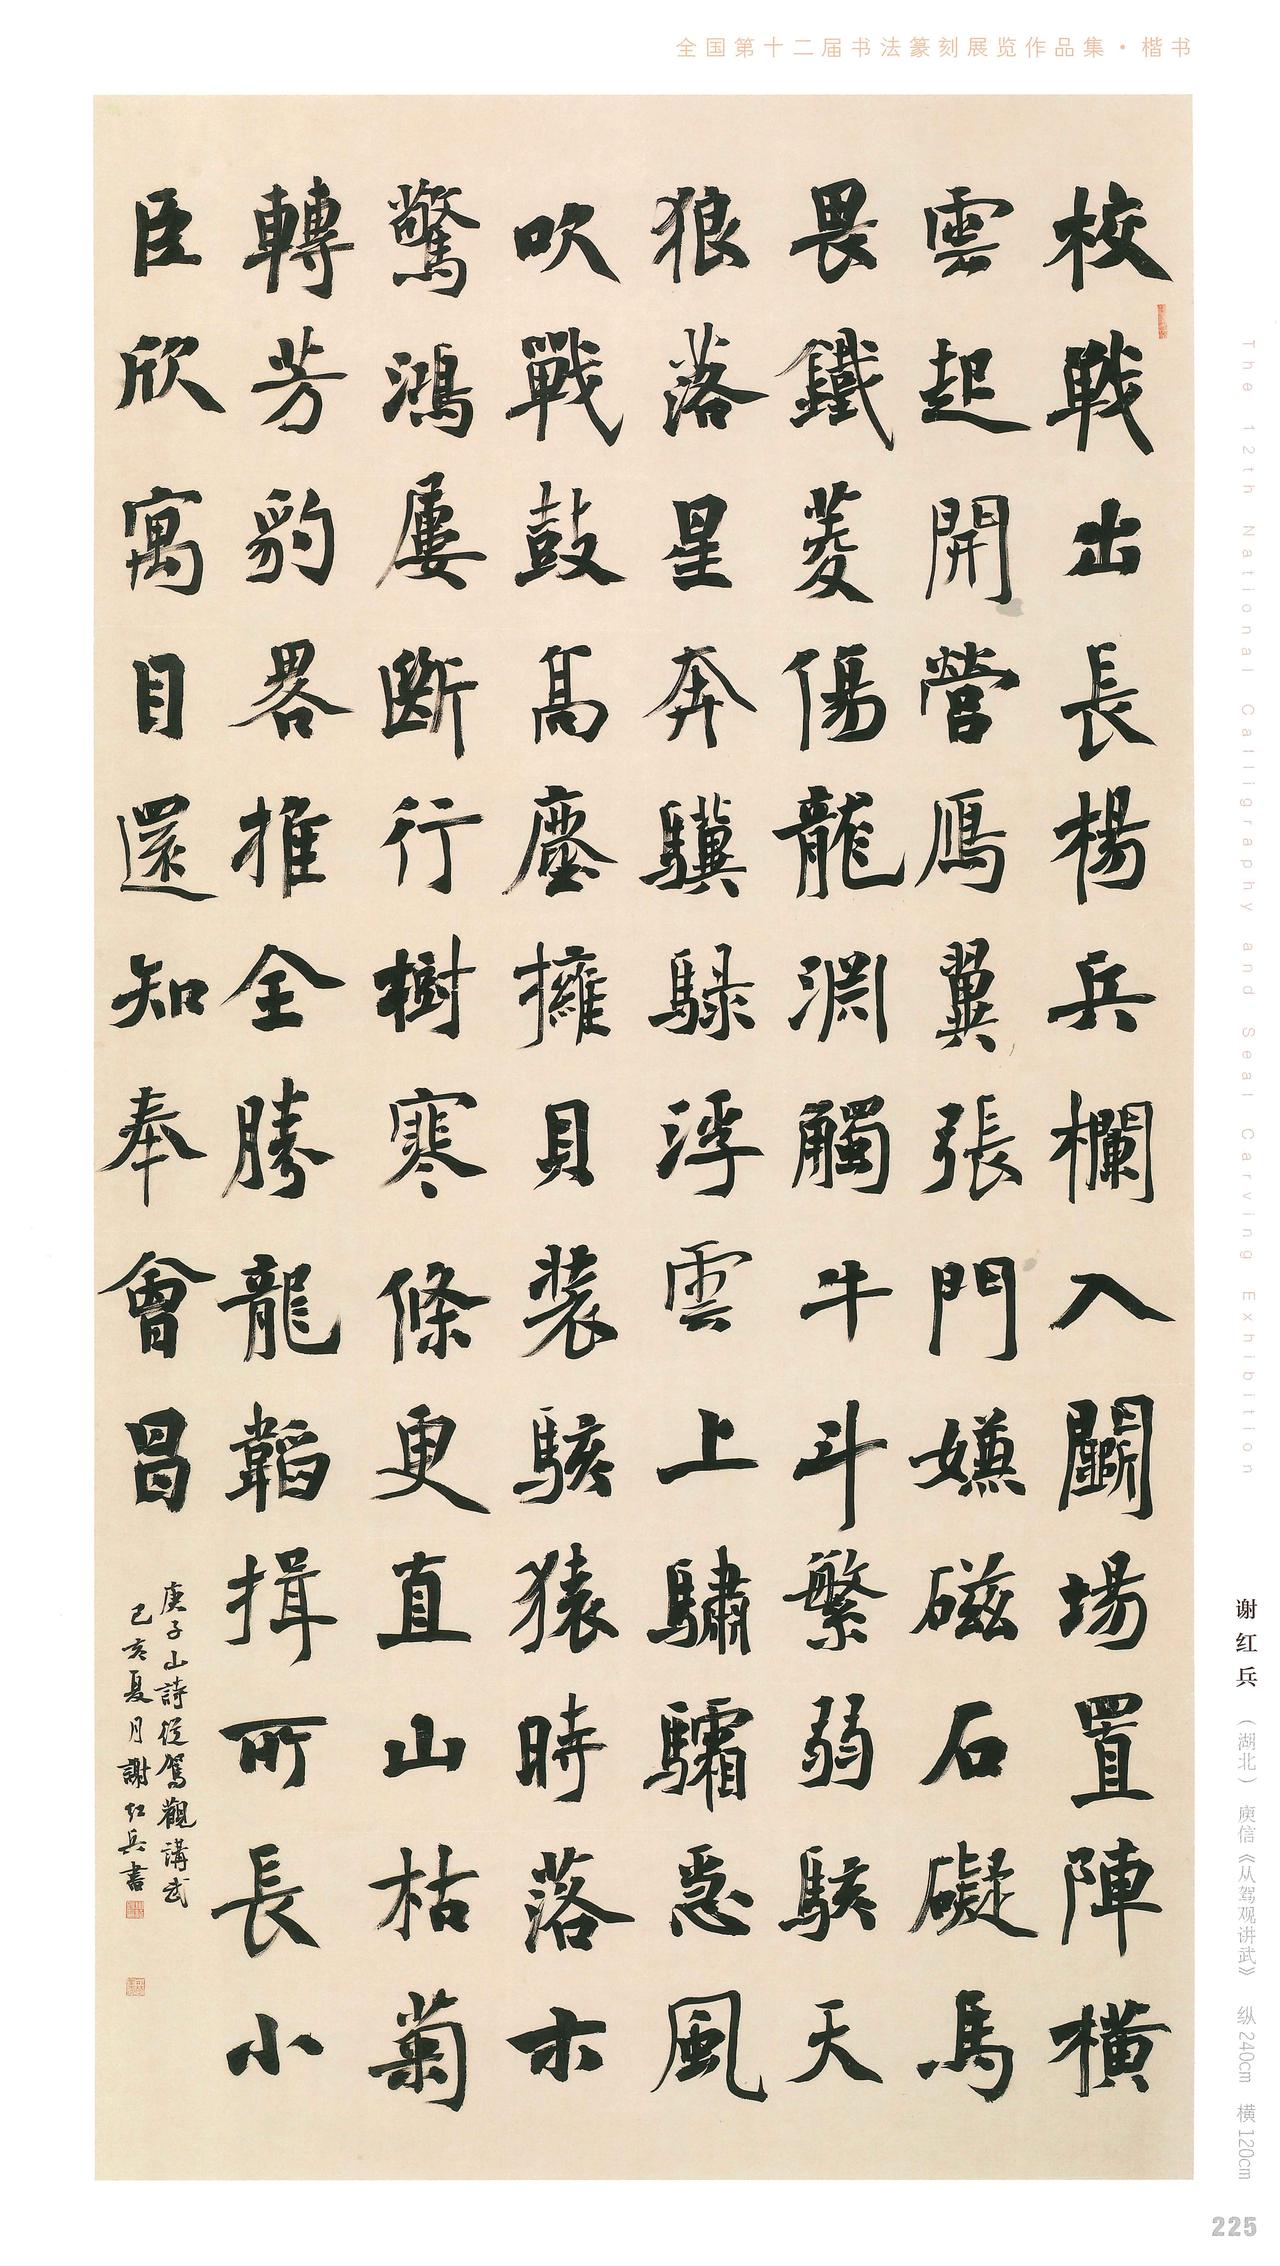 全国第十二届书法篆刻展览作品集·楷书
校戰出長楊兵欄入鬭場置陣橫
雲起開營鴈翼張門嫌磁石礙馬
畏鐵菱傷龍淵觸牛斗繁弱駭天
狼落星奔驥騄浮雲上驌驦急風
吹戰鼓高塵擁貝装駭猿時落木
驚鴻屢斷行樹寒條更直山枯菊
轉芳豹畧推全勝龍韜揖所長小
臣欣寓目還知奉會昌
庾子山詩從駕觀講武
己亥夏月謝紅兵書
The 12th National Calligraphy and Seal Carving Exhibition
谢红兵 (湖北) 庾信《从驾观讲武》 纵240cm 横120cm
225